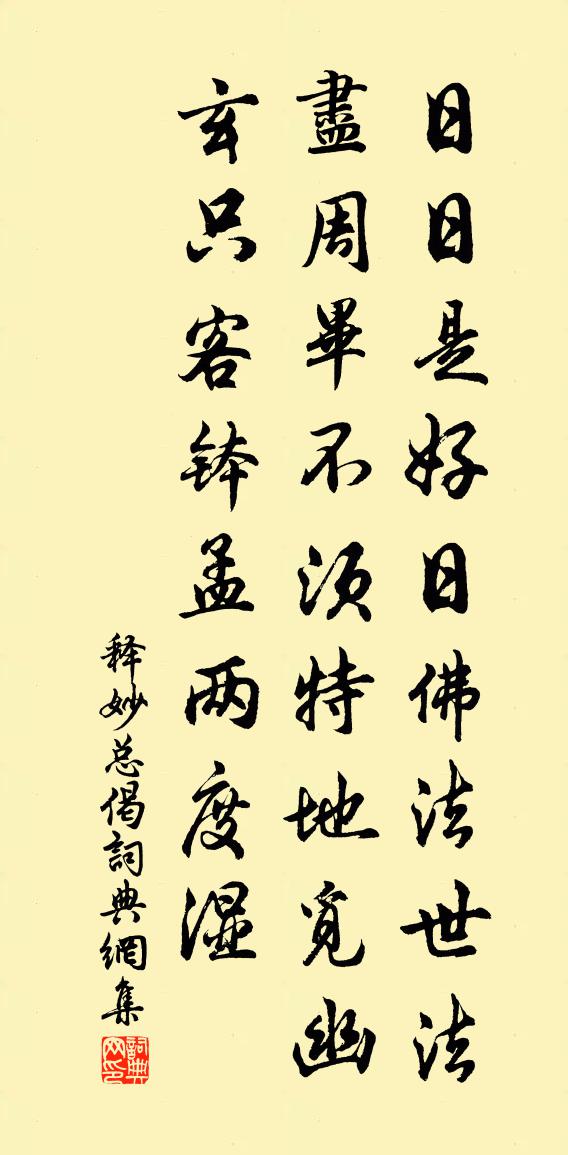 日日是好日佛法世法
盡周畢不須特地覓幽
玄只客鉢盂两度湿
释妙总偈詞典網集
詞典
网印